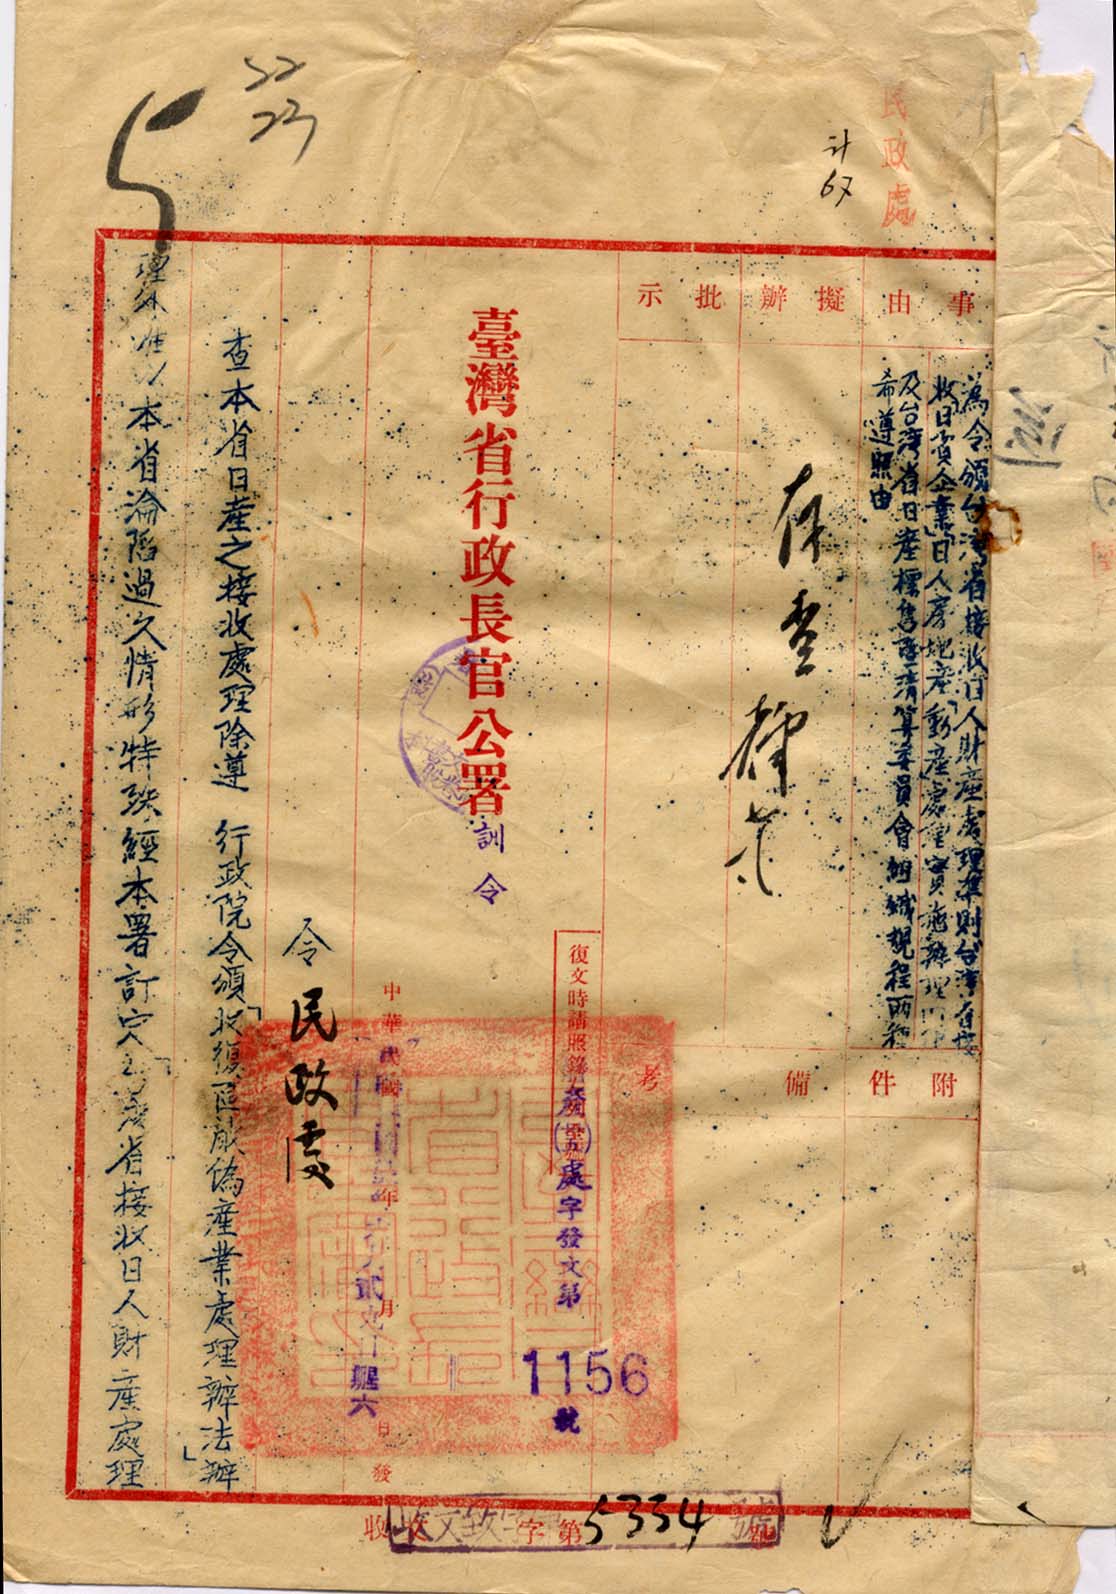 民政處
计
67
22
23
5
事由
擬辦
批示
為令頒台灣省接收日人財產處理準則台灣省接
收日資企業日人房地產動產處理實施辦理
及台灣省日產標售清算委員會組織規程兩種
希遵照由
存查
附件
備
考
復文時請照錄
處字發文第
1156
號
臺灣省行政長官公署
訓令
中華民國
年
月
日
發
令
民政處
查本省日產之接收處理除遵 行政院令頒「收復區敵偽產業處理辦法」辦
理外 本省淪陷過久情形特殊經本署訂定「台灣省接收日人財產處理
收
收文
字第5334號